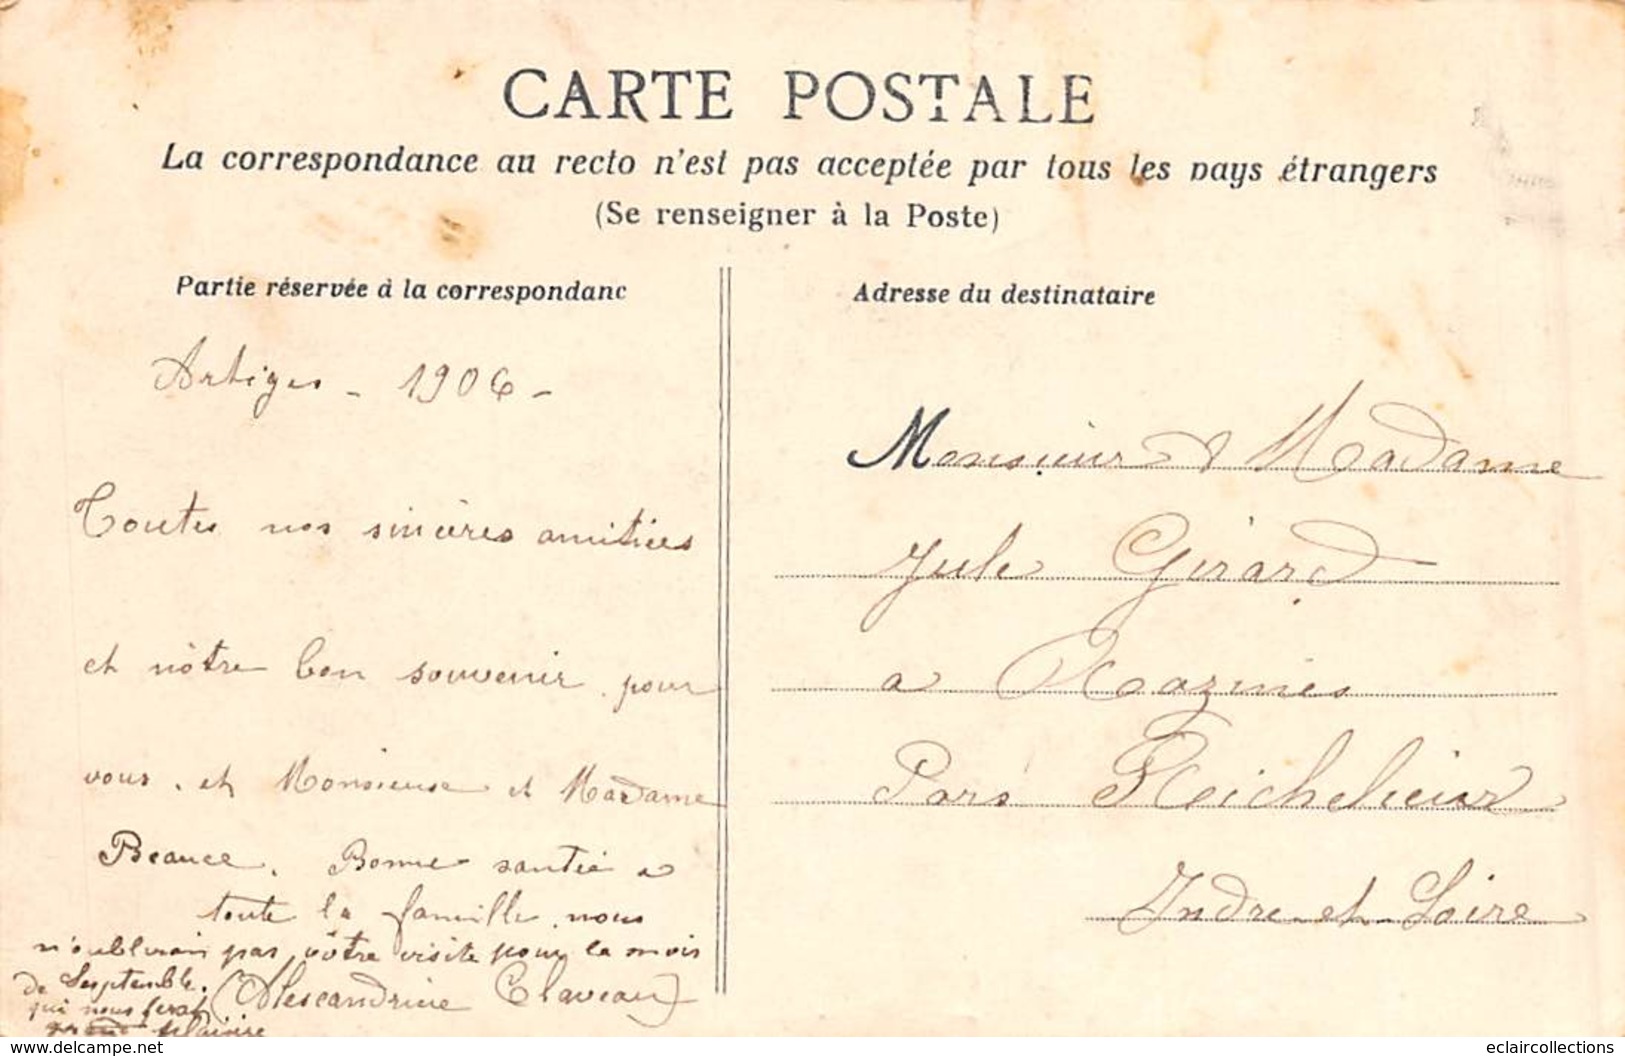 CARTE POSTALE
La correspondance au recto n'est pas acceptée par tous les pays étrangers
(Se renseigner à la Poste)
Partie réservée à la correspondanc
Artiges - 1906 -
Toutes nos sincères amitiées
et nôtre bon souvenir pour
vous. et Monsieur et Madame
Beauce. Bonne santié a
toute la famille. nous
n'oublirain pas vôtre visite pour le mois
de Sesptemble.
qui nous ferat
grand plaisire
(Alescandrine Claveau)
Adresse du destinataire
Monsieur & Madame
Jule Girard
a Razines
Pars Reichelieur
Indre-et-Loire
www.delcampe.net
eclaircollections